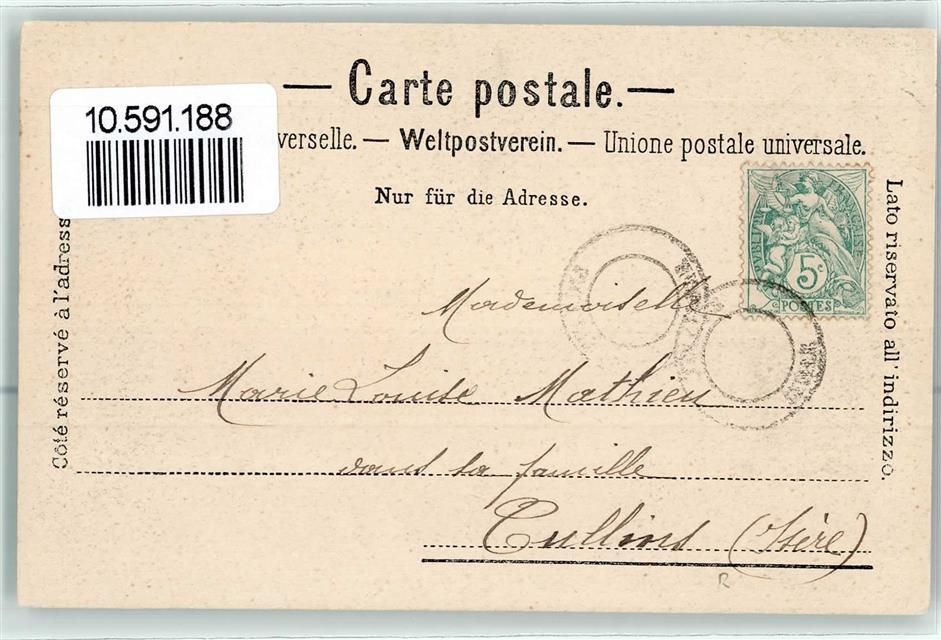 — Carte postale. —
10.591.188
verselle. — Weltpostverein. — Unione postale universale.
Nur für die Adresse.
Côté réservé à l'adress
Lato riservato all' indirizzo.
5c
POSTES
Mademoiselle
Marie Louise Mathieu
dans sa famille
Tullins (Isère)
R